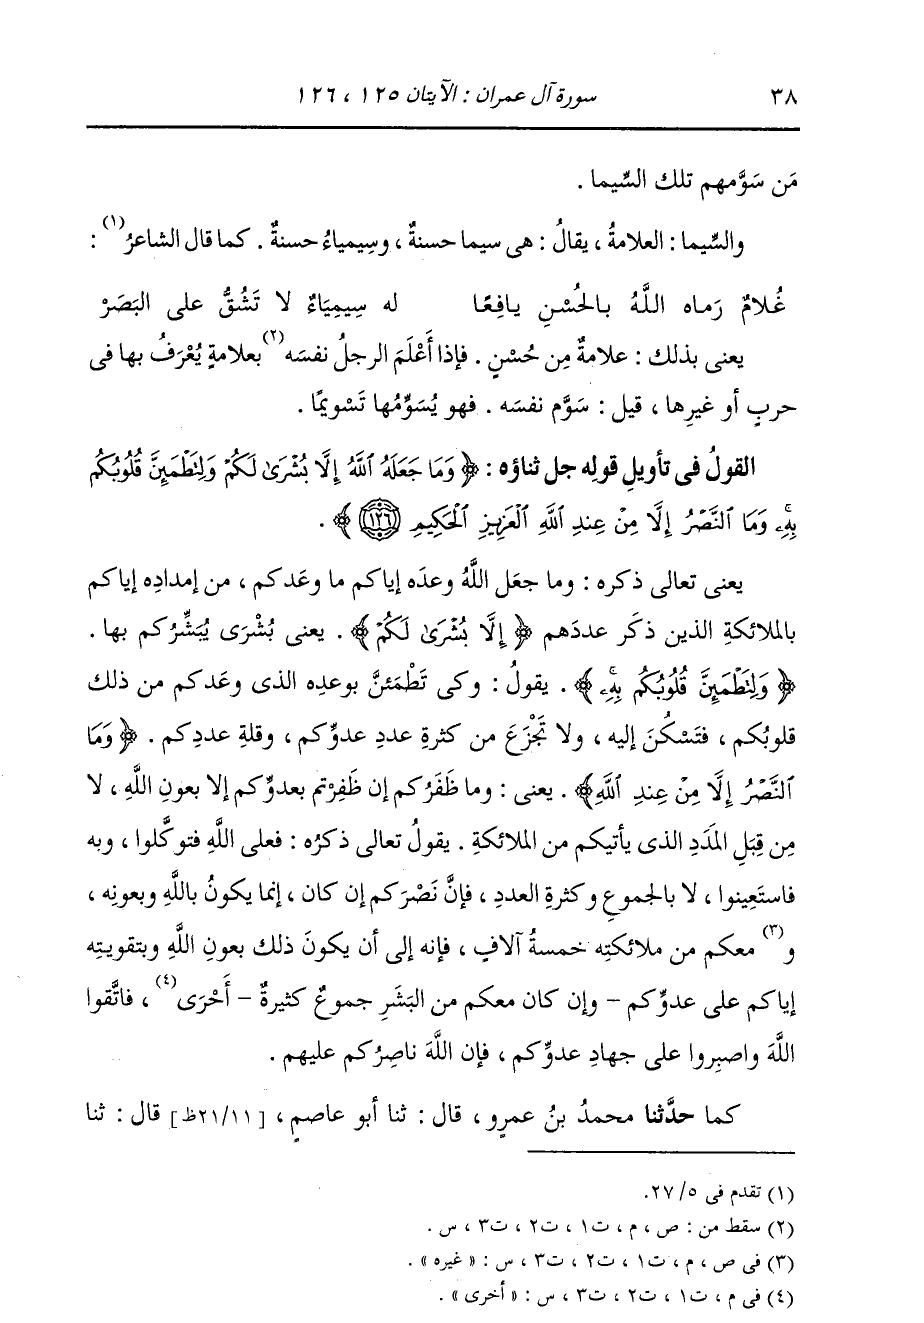 ٣٨ سورة آل عمران : الآيتان ١٢٥ ، ١٢٦
مَن سَوَّمهم تلك السِّيما .
والسِّيما : العلامةُ ، يقالُ : هى سيما حسنةٌ ، وسِيمياءُ حسنةٌ . كما قال الشاعرُ(١) :
غُلامٌ رَماه اللَّهُ بالحُسْنِ يافِعًا له سِيمِيَاءٌ لا تَشُقُّ على البَصَرْ
يعنى بذلك : علامةٌ مِن حُسْنٍ . فإذا أَعْلَمَ الرجلُ نفسَه(٢) بعلامةٍ يُعْرَفُ بها فى
حربٍ أو غيرِها ، قيل : سَوَّم نفسَه . فهو يُسَوِّمُها تَسْويمًا .
القولُ فى تأويلِ قولِه جل ثناؤه : ﴿ وَمَا جَعَلَهُ ٱللَّهُ إِلَّا بُشْرَىٰ لَكُمْ وَلِتَطْمَئِنَّ قُلُوبُكُم
بِهِۦ وَمَا ٱلنَّصْرُ إِلَّا مِنْ عِندِ ٱللَّهِ ٱلْعَزِيزِ ٱلْحَكِيمِ ١٢٦ ﴾ .
يعنى تعالى ذكره : وما جعَل اللَّهُ وعدَه إياكم ما وعَدكم ، من إمدادِه إياكم
بالملائكةِ الذين ذكَر عددَهم ﴿ إِلَّا بُشْرَىٰ لَكُمْ ﴾ . يعنى بُشْرَى يُبَشِّرُكم بها .
﴿ وَلِتَطْمَئِنَّ قُلُوبُكُم بِهِۦ ﴾ . يقولُ : وكى تَطْمَئنَّ بوعدِه الذى وعَدكم من ذلك
قلوبُكم ، فتَسْكُنَ إليه ، ولا تَجْزَعَ من كثرةِ عددِ عدوِّكم ، وقلةِ عددِكم . ﴿ وَمَا
ٱلنَّصْرُ إِلَّا مِنْ عِندِ ٱللَّهِ ﴾ . يعنى : وما ظَفَرُكم إن ظَفِرْتم بعدوِّكم إلا بعونِ اللَّهِ ، لا
مِن قِبَلِ المَدَدِ الذى يأتيكم من الملائكةِ . يقولُ تعالى ذكرُه : فعلى اللَّهِ فتوكَّلوا ، وبه
فاستَعِينوا ، لا بالجموعِ وكثرةِ العددِ ، فإنَّ نَصْرَكم إن كان ، إنما يكونُ باللَّهِ وبعونِه ،
و(٣) معكم من ملائكتِه خمسةُ آلافٍ ، فإنه إلى أن يكونَ ذلك بعونِ اللَّهِ وبتقويتِه
إياكم على عدوِّكم - وإن كان معكم من البَشَرِ جموعٌ كثيرةٌ - أَحْرَى(٤) ، فاتَّقوا
اللَّهَ واصبِروا على جهادِ عدوِّكم ، فإن اللَّهَ ناصِرُكم عليهم .
كما حدَّثنا محمدُ بنُ عمرٍو ، قال : ثنا أبو عاصمٍ ، [ ٢١/١١ظ] قال : ثنا
(١) تقدم فى ٥/ ٢٧.
(٢) سقط من : ص ، م ، ت١ ، ت٢ ، ت٣ ، س .
(٣) فى ص ، م ، ت١ ، ت٢ ، ت٣ ، س : « غيره » .
(٤) فى م ، ت١ ، ت٢ ، ت٣ ، س : « أخرى » .